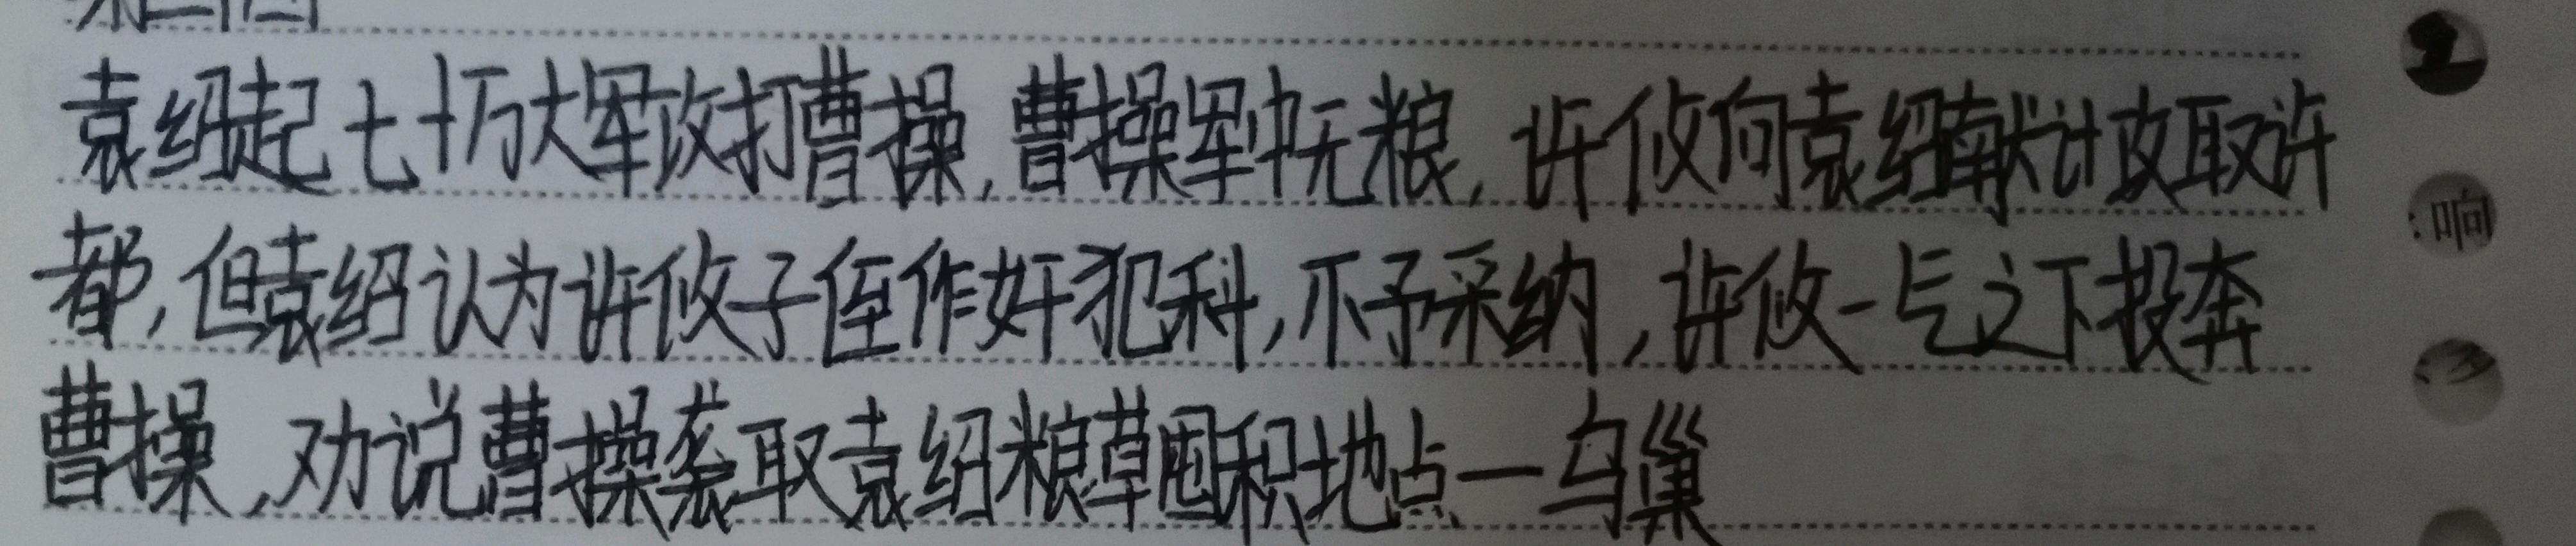 袁绍起七十万大军攻打曹操,曹操军中无粮,许攸向袁绍献计攻取许
都,但袁绍认为许攸子侄作奸犯科,不予采纳,许攸一气之下投奔
曹操,劝说曹操袭取袁绍粮草囤积地点一乌巢
响